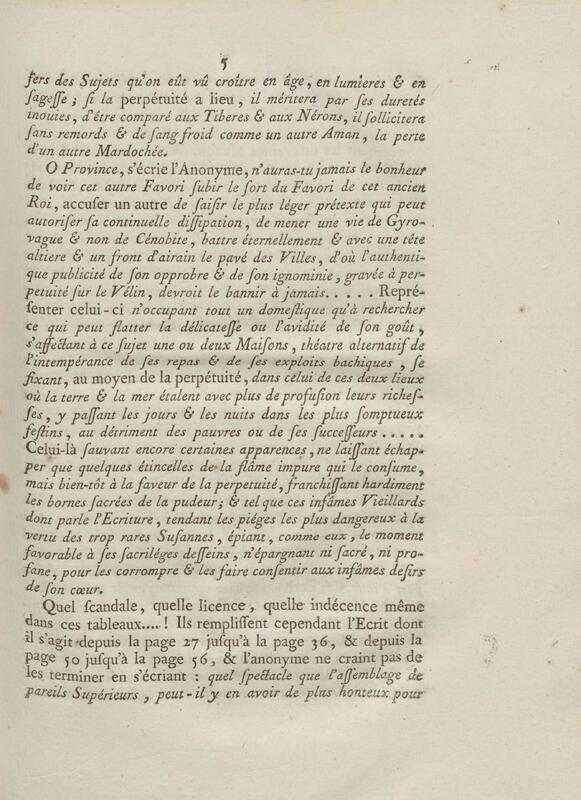 5
fers des Sujets qu'on eût vû croître en âge, en lumieres & en
ſageſſe ; ſi la perpétuité a lieu, il méritera par ſes duretés
inouies, d'être comparé aux Tiberes & aux Nérons, il ſollicitera
ſans remords & de ſang froid comme un autre Aman, la perte
d'un autre Mardochée.
O Province, s'écrie l'Anonyme, n'auras-tu jamais le bonheur
de voir cet autre Favori ſubir le ſort du Favori de cet ancien
Roi, accuſer un autre de ſaiſir le plus léger prétexte qui peut
autoriſer ſa continuelle diſſipation, de mener une vie de Gyro-
vague & non de Cénobite, battre éternellement & avec une tête
altiere & un front d'airain le pavé des Villes, d'où l'authenti-
que publicité de ſon opprobre & de ſon ignominie, gravée à per-
petuité ſur le Vélin, devroit le bannir à jamais..... Repré-
ſenter celui-ci n'occupant tout un domeſtique qu'à rechercher
ce qui peut flatter la délicateſſe ou l'avidité de ſon goût,
s'affectant à ce ſujet une ou deux Maiſons, théatre alternatif de
l'intempérance de ſes repas & de ſes exploits bachiques, ſe
fixant, au moyen de la perpétuité, dans celui de ces deux lieux
où la terre & la mer étalent avec plus de profuſion leurs richeſ-
ſes, y paſſant les jours & les nuits dans les plus ſomptueux
feſtins, au détriment des pauvres ou de ſes ſucceſſeurs.....
Celui-là ſauvant encore certaines apparences, ne laiſſant échap-
per que quelques étincelles de la flâme impure qui le conſume,
mais bien-tôt à la faveur de la perpetuité, franchiſſant hardiment
les bornes ſacrées de la pudeur; & tel que ces infâmes Vieillards
dont parle l'Ecriture, tendant les piéges les plus dangereux à la
vertu des trop rares Suſannes, épiant, comme eux, le moment
favorable à ſes ſacriléges deſſeins, n'épargnant ni ſacré, ni pro-
fane, pour les corrompre & les faire conſentir aux infâmes deſirs
de ſon cœur.
Quel ſcandale, quelle licence, quelle indécence même
dans ces tableaux....! Ils rempliſſent cependant l'Ecrit dont
il s'agit depuis la page 27 juſqu'à la page 36, & depuis la
page 50 juſqu'à la page 56, & l'anonyme ne craint pas de
les terminer en s'écriant : quel ſpectacle que l'aſſemblage de
pareils Supérieurs, peut-il y en avoir de plus honteux pour